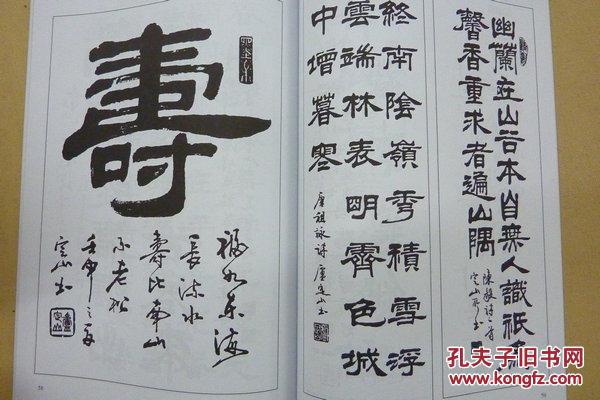 幽蘭在山谷本自無人識祇為
馨香重求者遍山隅
陳毅詩一首
定山書
終南陰嶺秀積雪浮
雲端林表明霽色城
中增暮寒
唐祖詠詩 唐定山書
壽
福如東海
長流水
壽比南山
不老松
壬申之夏
定山書
58
59
孔夫子旧书网
www.kongfz.com